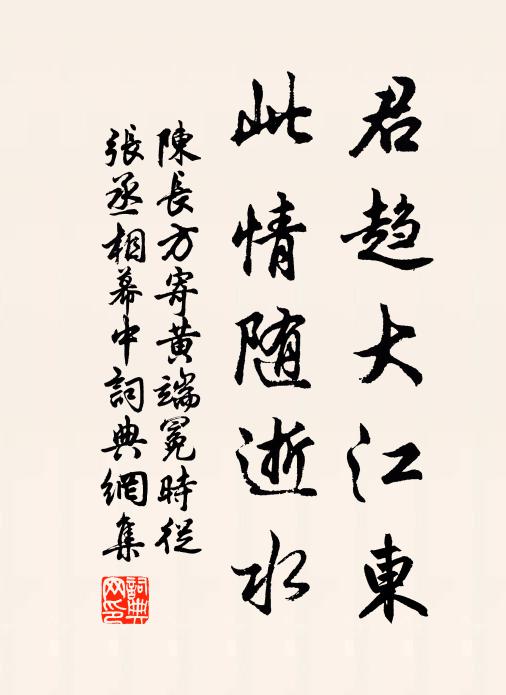 君趋大江東
此情随逝水
陳長方寄黄端冕時從
張丞相幕中詞典網集